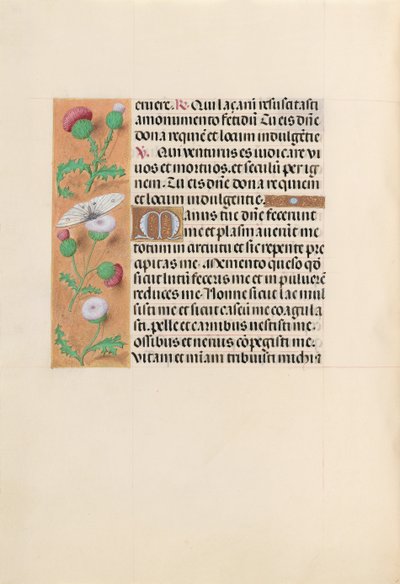 eruere. R. Qui laçarũ resuscitasti
a monumento fetidũ Tu eis dñe
dona requiẽ et locum indulgẽtie
V. Qui venturus es iudicare vi
uos et mortuos. et seculũ per ig
nem. Tu eis dñe dona requiem
et locum indulgentie.
Manus tue dñe fecerunt
me et plasmauerũt me
totum in circuitu et sic repente pre
cipitas me. Memento queso qđ
sicut lutũ feceris me et in puluerẽ
reduces me. Nonne sicut lac mul
sisti me et sicut caseũ me coagula
sti. pelle et carnibus vestisti me.
ossibus et neruis cõpegisti me.
Vitam et miãm tribuisti michi